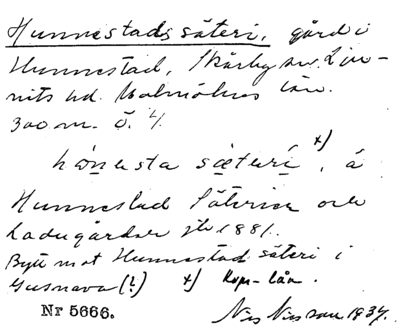 Hunnestads säteri, gård i
Hunnestad, Skårby sn. Lju-
nits hd. Malmöhus län.
300 m. ö. 4.
hǫnesta sæterí x), å
Hunnestad Säterier och
Ladugårdar jb 1881.
Bytt mot Hunnestad säteri i
Gusnava (?) x) Kop- län.
Nr 5666. Nils Nilsson. 1934.